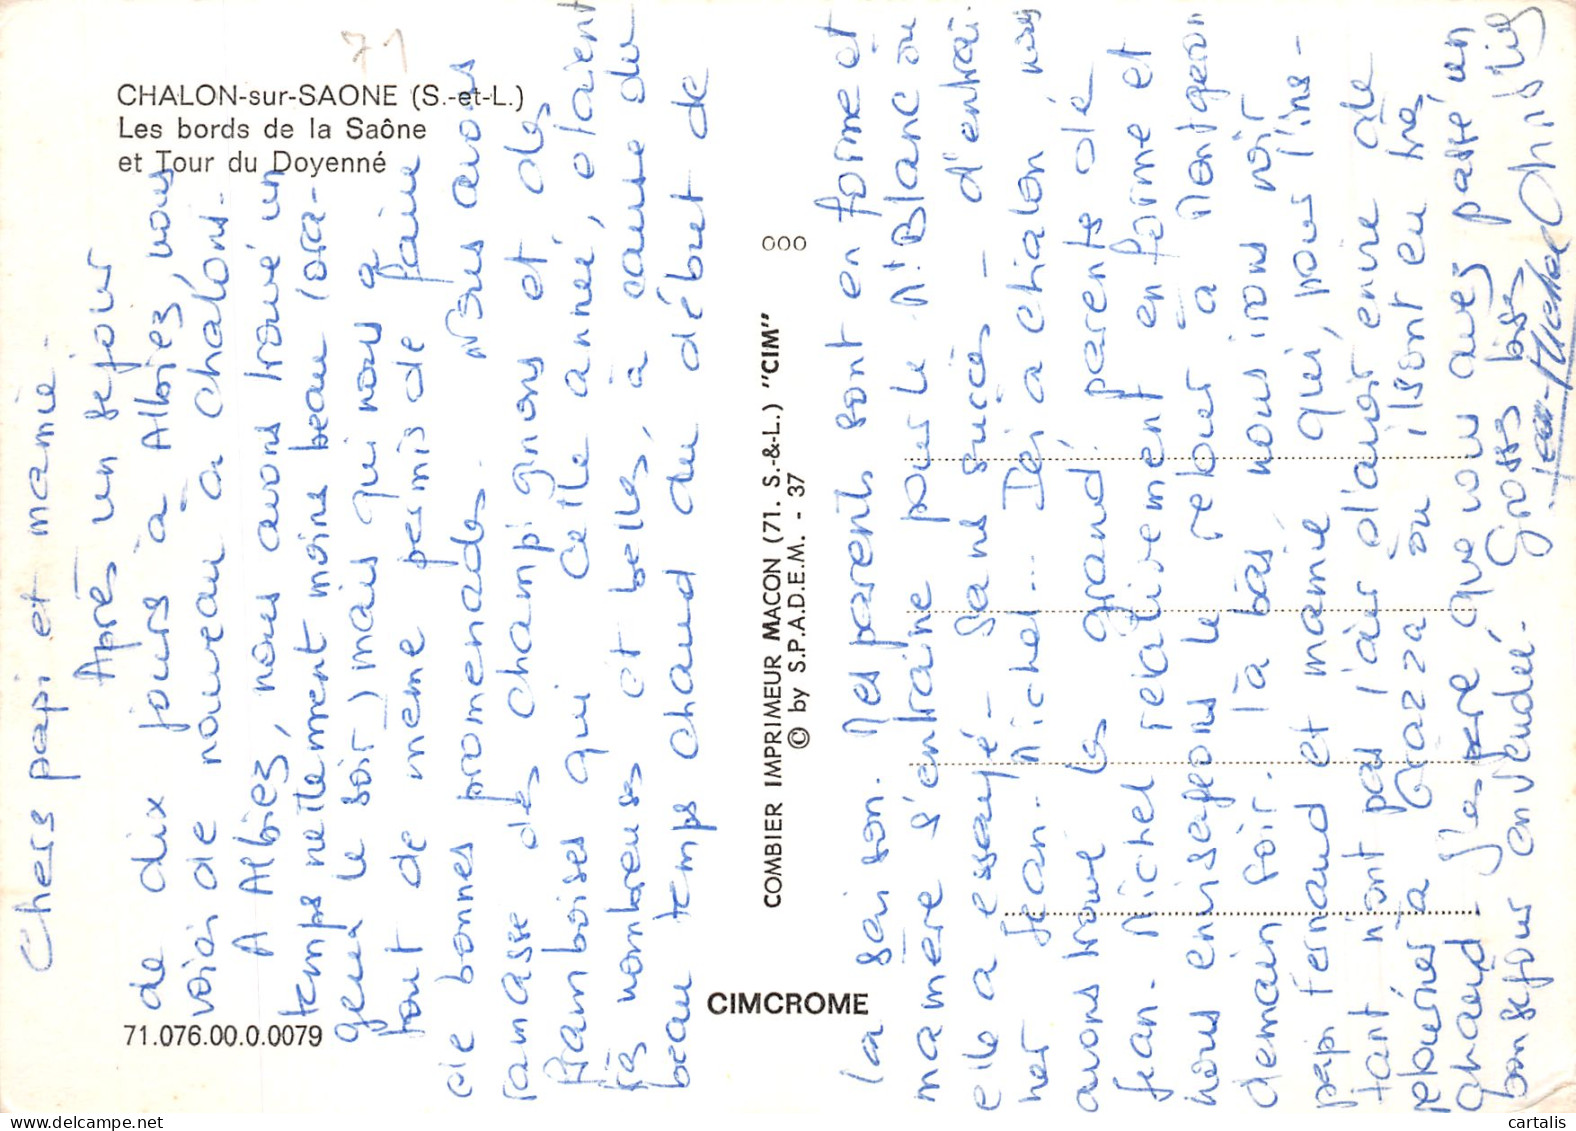 71
CHALON-sur-SAONE (S.-et-L.)
Les bords de la Saône
et Tour du Doyenné
Chers papi et mamie.
Après un séjour
de dix jours à Albiez, nous
voici de nouveau à chalons.
A Albiez, nous avons trouvé un
temps nettement moins beau (ora-
geux le soir) mais qui nous a
tout de meme permis de faire
de bonnes promenades. Nous avons
ramasse des champignons et des
framboises qui cette année, étaient
très nombreuses et belles, à cause du
beau temps chaud du début de
la saison. Mes parents sont en forme et
ma mère s'entraîne pour le Mt Blanc où
elle a essayé - sans succès - d'entraî-
ner Jean-Michel... Dejà chialon nous
avons trouvé les grand.parents de
Jean-Michel relativement en forme et
nous envisageons le retour à Montgeron
demain soir. là bas, nous irons voir
papi Fernand et mamie qui, pour l'ins-
tant n'ont pas l'air d'avoir envie de
retourner à Grazza où ilsont eu très
chaud. J'espere que vous avez passé un
bon séjour en vendée. Grosses bises
Christine
Jean-Michel
000
COMBIER IMPRIMEUR MACON (71. S.-&-L.) "CIM"
© by S.P.A.D.E.M. - 37
CIMCROME
71.076.00.0.0079
delcampe.net
cartalis